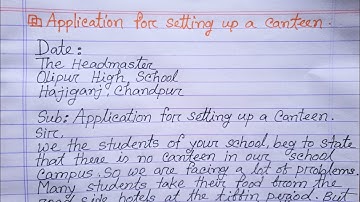 Application for setting up a canteen.
Date:
The Headmaster
Olipur High, School
Hajiganj, Chandpur
Sub: Application for setting up a Canteen.
Sir,
we the students of your school, beg to state
that there is no canteen in our school
campus. So we are facing a lot of problems.
Many students take their food from the
road side hotels at the tiffin period. But